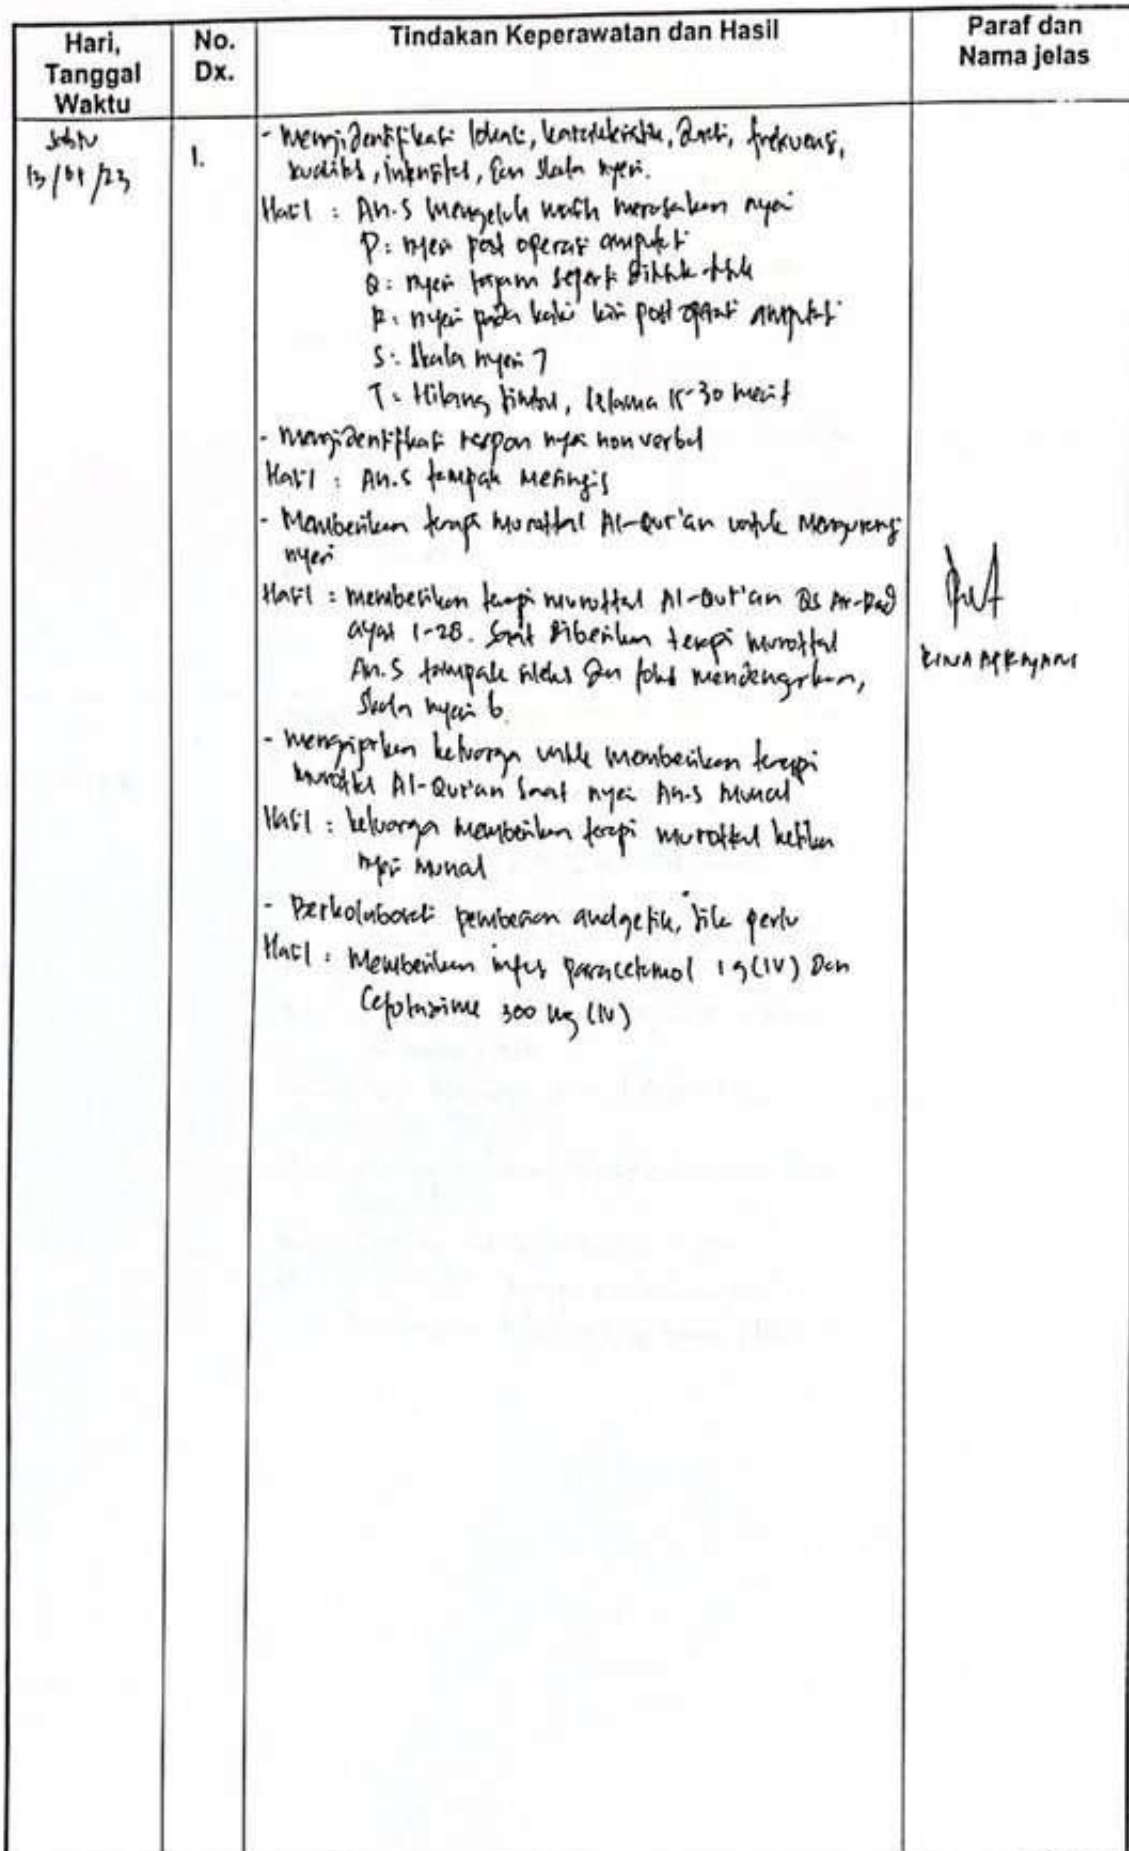 Hari,
Tanggal
Waktu
No.
Dx.
Tindakan Keperawatan dan Hasil
Paraf dan
Nama jelas
Sabtu
13/ /23
1.
- Mengidentifikasi lokasi, karakteristik, durasi, frekuensi,
kualitas, intensitas, dan skala nyeri.
Hasil : An.S mengeluh masih merasakan nyeri
P : nyeri post operasi amputasi
Q : nyeri tajam seperti ditusuk-tusuk
R : nyeri pada kaki kiri post operasi amputasi
S : Skala nyeri 7
T : Hilang timbul, selama 15-30 menit
- Mengidentifikasi respon nyeri non verbal
Hasil : An.S tampak meringis
- Memberikan terapi murottal Al-Qur'an untuk mengurangi
nyeri
Hasil : memberikan terapi murottal Al-Qur'an QS Ar-Rad
ayat 1-28. Saat diberikan terapi murottal
An.S tampak rileks dan fokus mendengarkan,
Skala nyeri 6.
- keluarga untuk memberikan terapi
murottal Al-Qur'an saat nyeri An.S muncul
Hasil : keluarga memberikan terapi murottal ketika
nyeri muncul
- Berkolaborasi pemberian analgetik, jika perlu
Hasil : Memberikan infus paracetamol 1 g (IV) Dan
Cefotaxime 300 mg (IV)